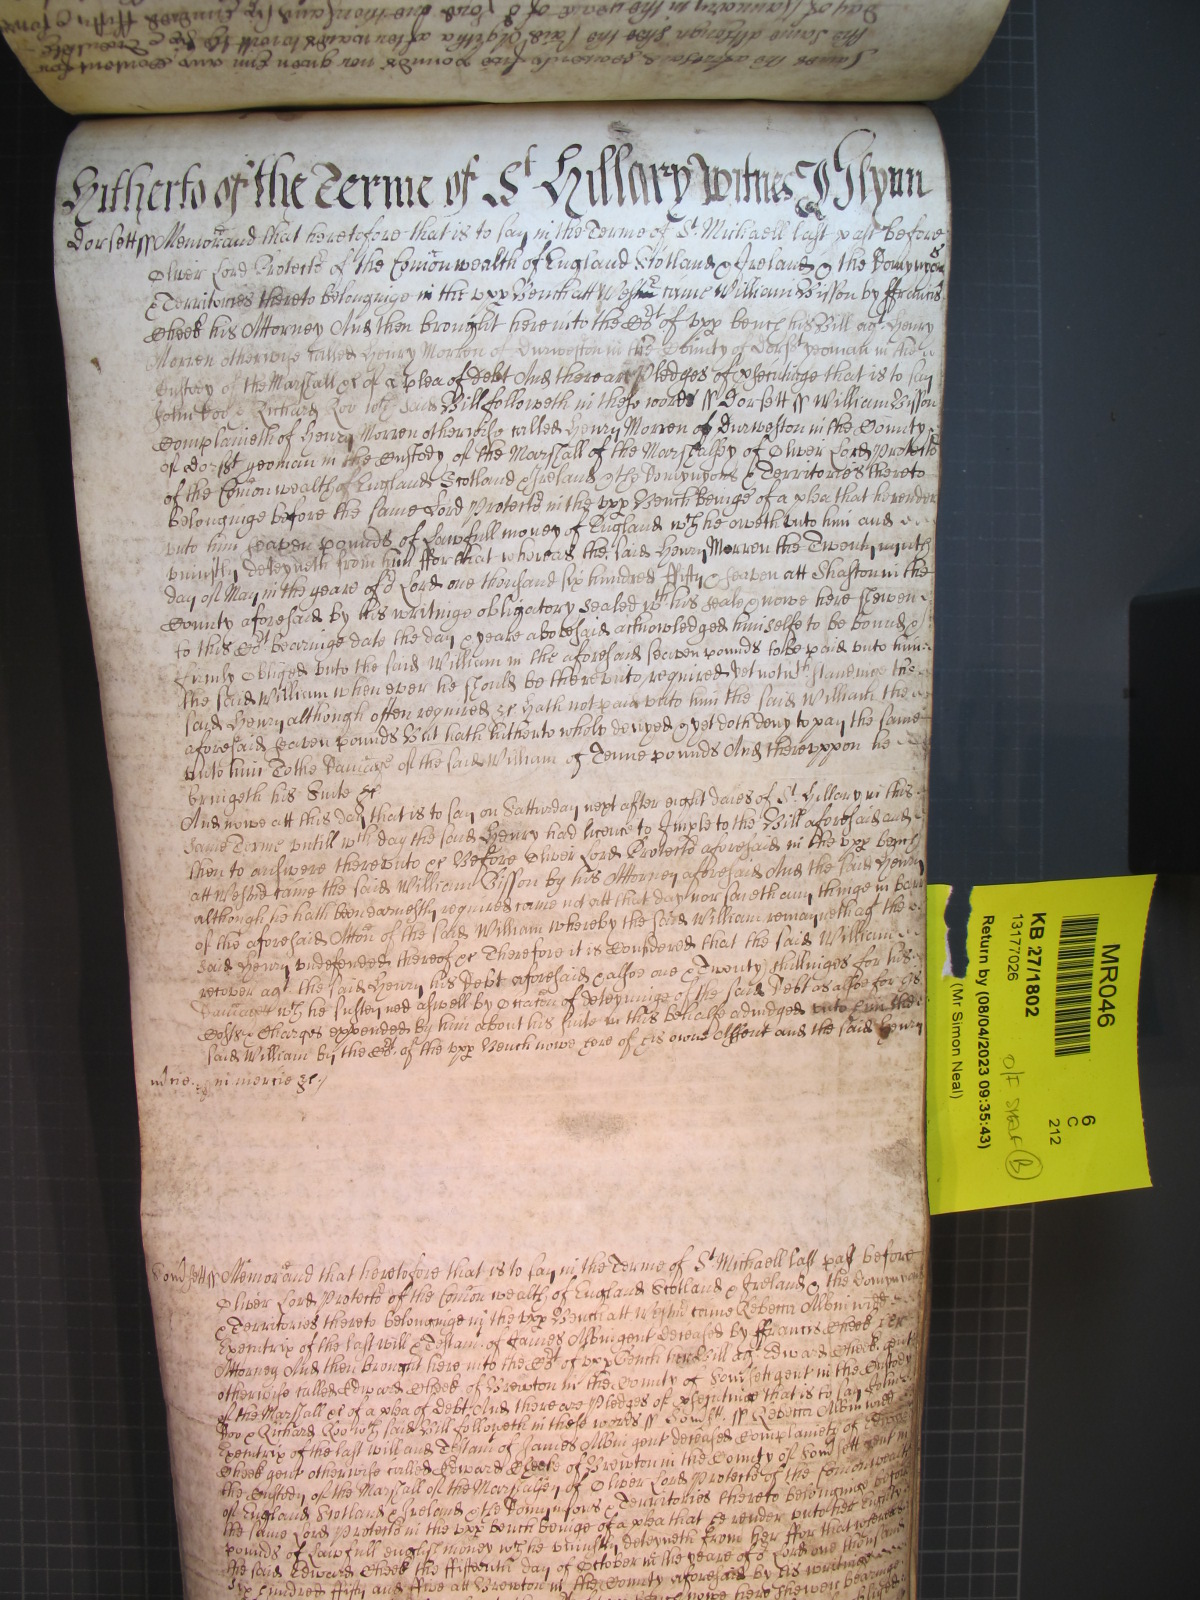 James the aforesaid seaventy five pounds nor given him any Content for
the same although shee the said Aglitha afterwards to witt the
day of January in the yeare of or Lord one thousand six hundred fifty
Hitherto of the Terme of St Hillary witnes J Glynn
Dorsett ss Memorand that heretofore that is to say in the Terme of St Michaell last past before
Oliver Lord Protectr of the Comonwealth of England Scotland & Ireland & the Domynyons
& Territories thereto belonginge in the upp Bench att Westmr came William Bisson by ffrancis
Cheeke his Attorney And then brought here into the Cort of upp bench his Bill agt Henry
Morren otherwise called Henry Morren of Durweston in the County of Dorst yeoman in the
Custody of the Marshall &c of a plea of debt And there are Pledges of psecutinge that is to say
John Doe & Richard Roo wch said Bill followeth in these words ss Dorsett ss William Bisson
Complaineth of Henry Morren otherwise called Henry Morren of Durweston in the County
of Dorst yeoman in the Custody of the Marshall of the Marshalsey of Oliver Lord Protector
of the Comonwealth of England Scotland & Ireland & the Domynyons & Territories thereto
belonginge before the same Lord Protectr in the upp Bench beinge of a plea that he render
unto him seaven pounds of Lawfull money of England wch he oweth unto him and
uniustly deteyneth from him ffor that whereas the said Henry Morren the Twenty nineth
day of May in the yeare of or Lord one thousand six hundred ffifty & seaven att Shaston in the
County aforesaid by his writinge obligatory sealed wth his seale & nowe here shewen
to this Cort bearinge date the day & yeare abovesaid acknowledged himselfe to be bound &
firmly obliged unto the said William in the aforesaid seaven pounds to be paid unto him
the said William when ever he should be thereunto required Yet notwthstandinge the
said Henry although often required &c hath not paid unto him the said William the
aforesaid seaven pounds But hath hitherto wholy denyed & yet doth deny to pay the same
unto him To the Damage of the said William of Tenne pounds And thereuppon he
bringeth his Suite &c
And nowe att this day that is to say on Satturday next after eight daies of St Hillary in this
same Terme untill wch day the said Henry had licence to Imple to the Bill aforesaid and
then to answere thereunto &c Before Oliver Lord Protectr aforesaid in the upp bench
att Westmr came the said William Bisson by his Attorney aforesaid And the said Henry
although he hath been earnestly required came not att that day nor saieth any thinge in barr
of the aforesaid Accon of the said William whereby the said William remayneth agt the
said Henry undefended thereof &c Therefore it is Considered that the said William
recover agt the said Henry his Debt aforesaid & alsoe one & Twenty shillinges for his
Damages wch he susteyned aswell by Occacon of deteyninge of the said Debt as alsoe for his
Costs & Charges expended by him about his suite in this behalfe adiudged unto him the
said William by the Cort of the upp Bench nowe here of his owne Assent and the said Henry
mcie in mercie &c
Somsett ss Memorand that heretofore that is to say in the Terme of St Michaell last past before
Oliver Lord Protectr of the Comonwealth of England Scotland & Ireland & the Domynyons
& Territories thereto belonginge in the upp Bench att Westmr came Rebecca Albin widd
Executrix of the last will & Testamt of James Albin gent deceased by ffrancis Cheek her
Attorney And then brought here into the Cort of upp Bench her Bill agt Edward Cheek gent
otherwise called Edward Cheek of Brewton in the County of Somsett gent in the Custody
of the Marshall &c of a plea of debt And there are Pledges of psecutinge that is to say John
Doo & Richard Roo wch said Bill followeth in these words ss Somst ss Rebecca Albin widd
Executrix of the last will and Testamt of James Albin gent deceased Complaineth of Edward
Cheek gent otherwise called Edward Cheeke of Brewton in the County of Somsett gent in
the Custody of the Marshall of the Marshalsey of Oliver Lord Protectr of the Comonwealth
of England Scotland & Ireland & the Dominions & Territories thereto belonginge before
the same Lord Protectr in the upp bench beinge of a plea that he render unto her eighty
pounds of Lawfull english money wch he uniustly deteyneth from her ffor that whereas
the said Edward Cheek the ffifteenth day of October in the yeare of or Lord one thousand
six hundred ffifty and ffive att Brewton in the County aforesaid by his writinge
nowe here shewen bearinge
MR046
KB 27/1802
13177026
Return by (08/04/2023 09:35:43)
(Mr Simon Neal)
6
C
212
O/F SHELF B